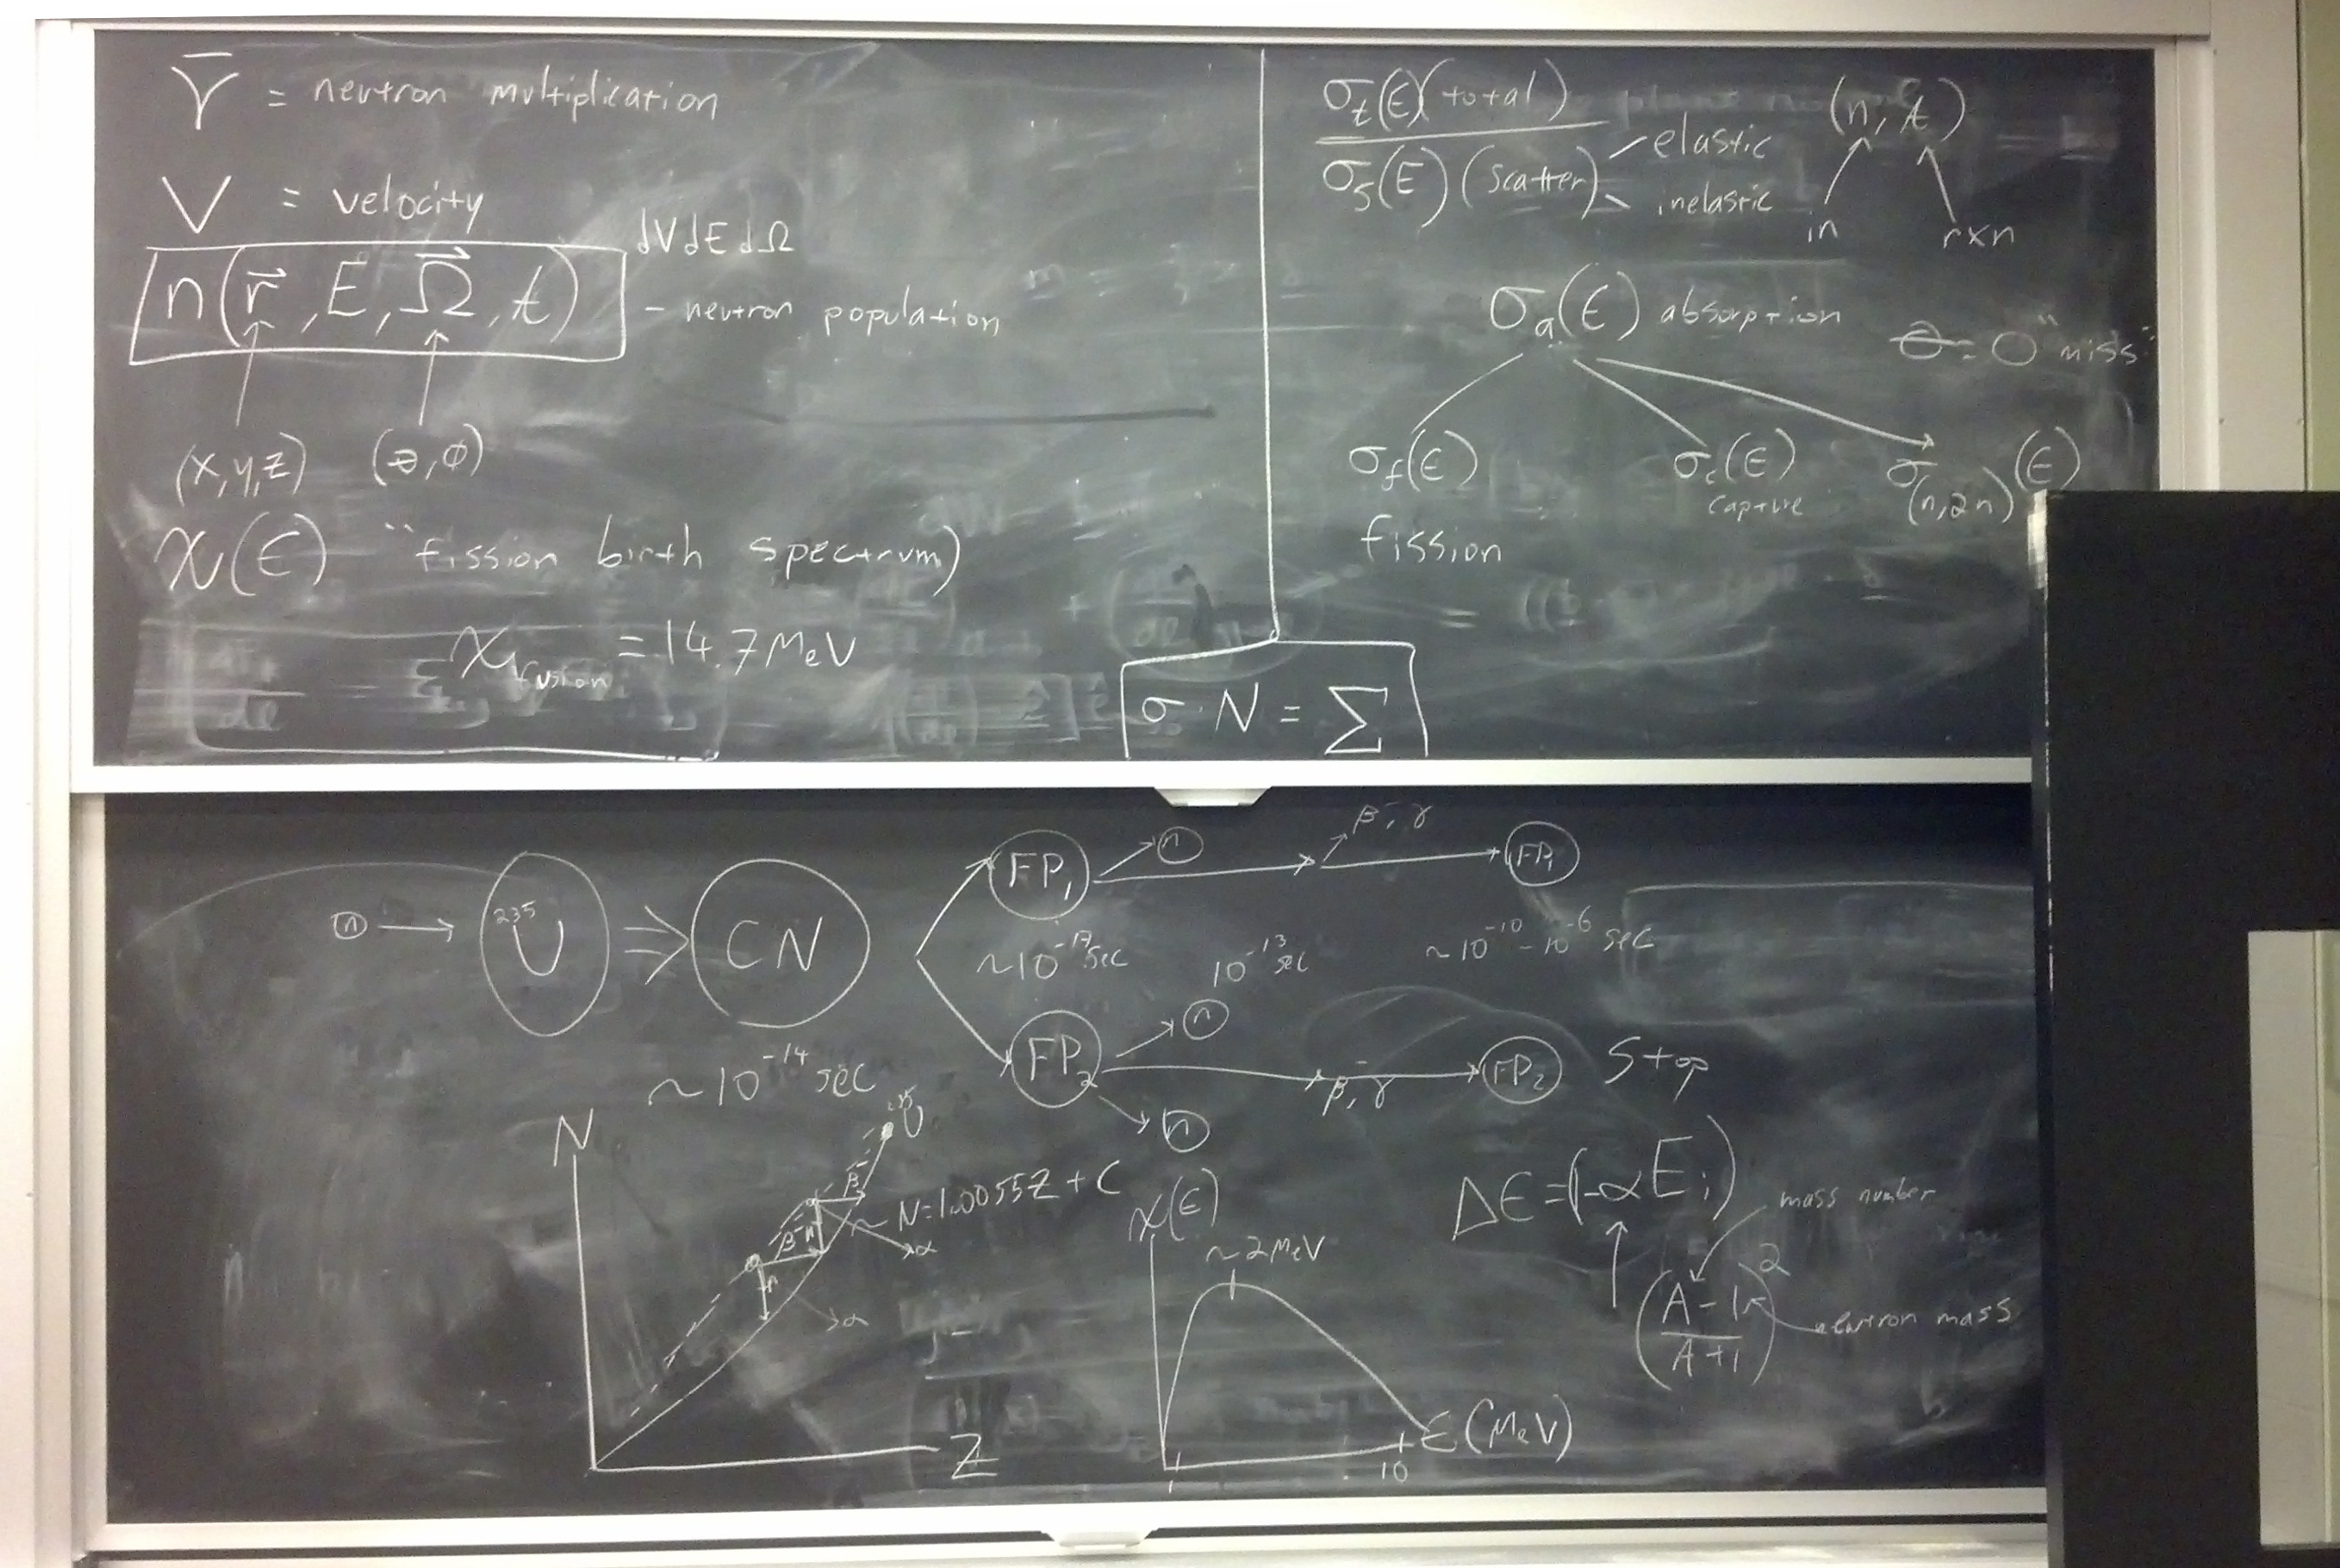 ν̅ = neutron multiplication
V = velocity
dVdEdΩ
n(r⃗, E, Ω⃗, t) - neutron population
(x,y,z) (θ,φ)
χ(E) "fission birth spectrum)
χfusion = 14.7 MeV
σt(E)(total)
σs(E)(scatter)
elastic
inelastic
(n, t)
in
rxn
σa(E) absorption
θ = 0 "miss"
σf(E)
fission
σc(E)
capture
σ(n,2n)(E)
σ · N = Σ
n → ²³⁵U ⇒ CN
~10⁻¹⁴ sec
FP₁ n β⁻, γ FP₁
~10⁻¹⁷ sec 10⁻¹³ sec ~10⁻¹⁰ - 10⁻⁶ sec
FP₂ n n β⁻, γ FP₂ Stop
N
²³⁵U
β⁻
N=1.0055Z + C
α
β⁻ n
n
α
Z
χ(E)
~2 MeV
1
10
E (MeV)
ΔE = (1-αEi)
mass number
(A-1/A+1)²
neutron mass